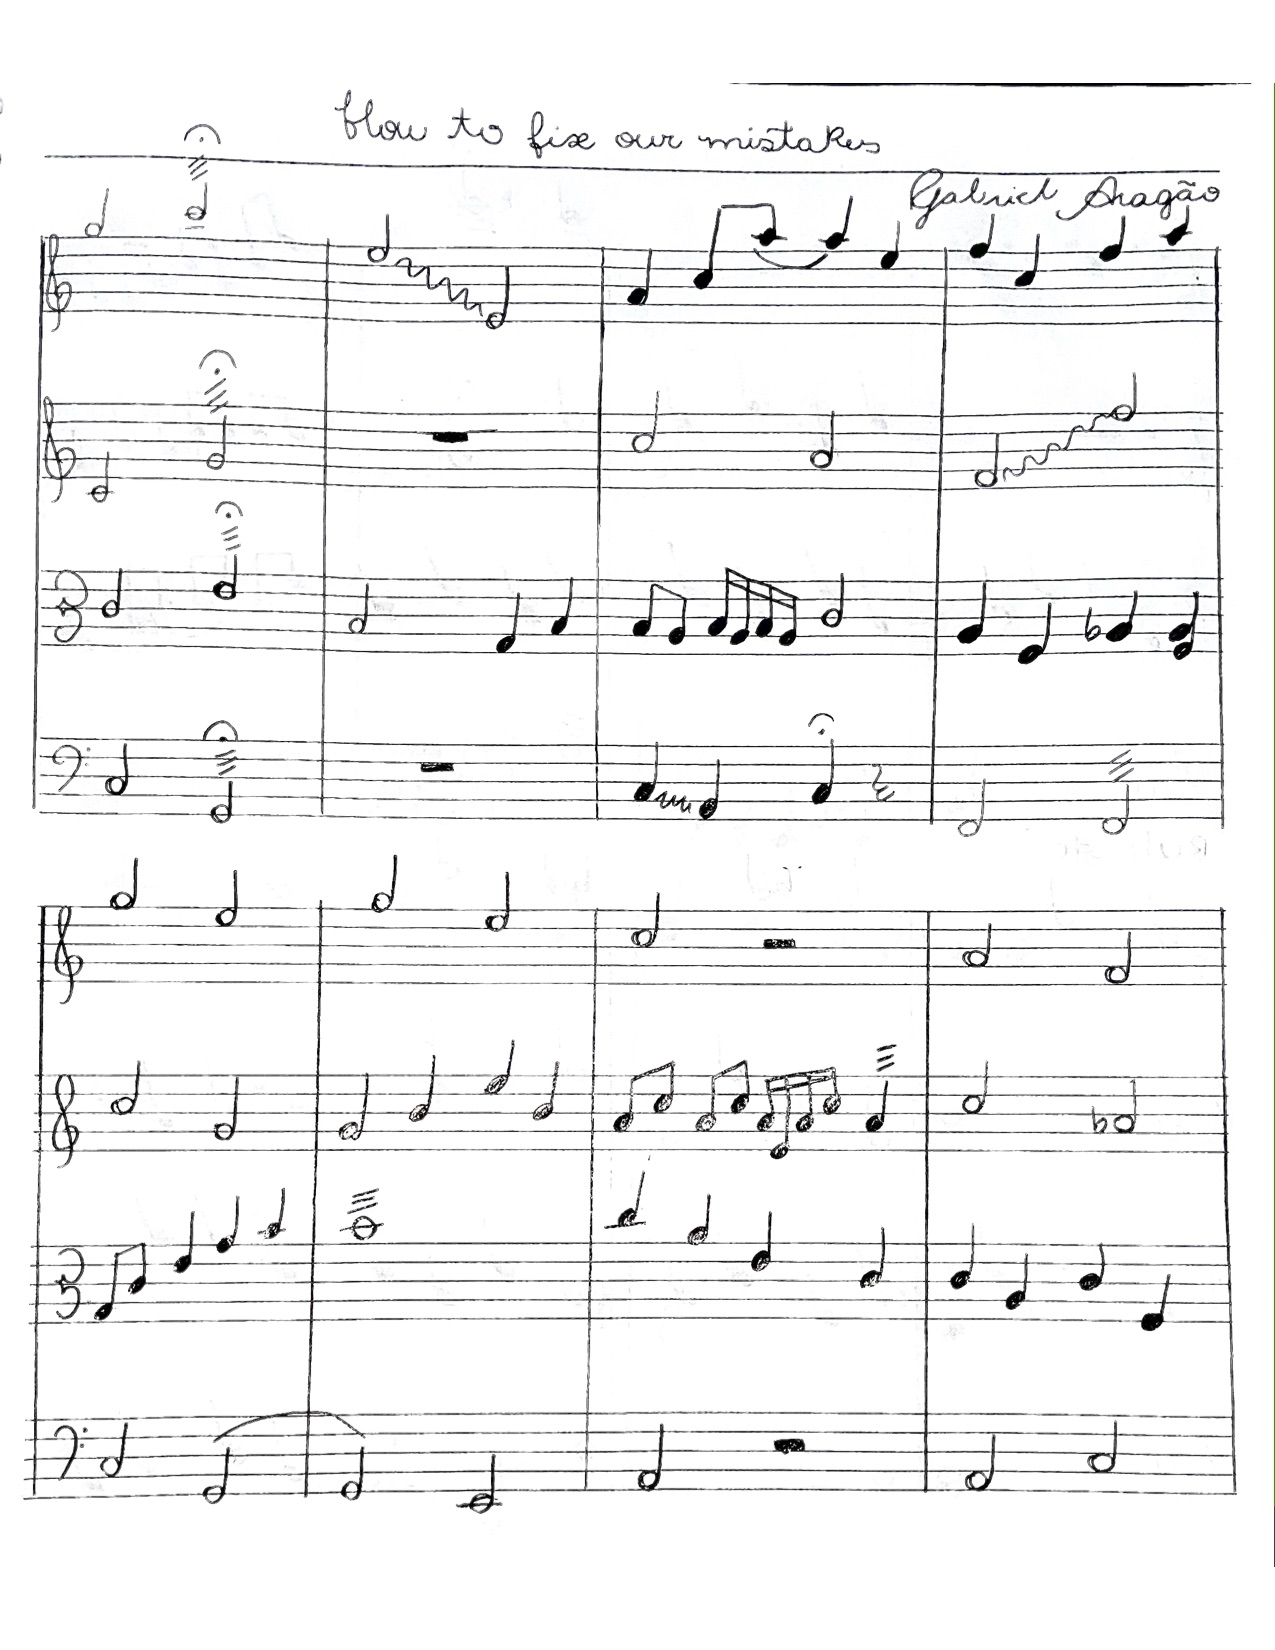 How to fix our mistakes
Gabriel Aragão